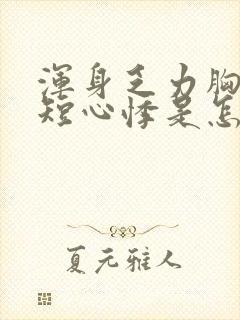 渾身乏力胸
短心悸是怎
夏元雅人